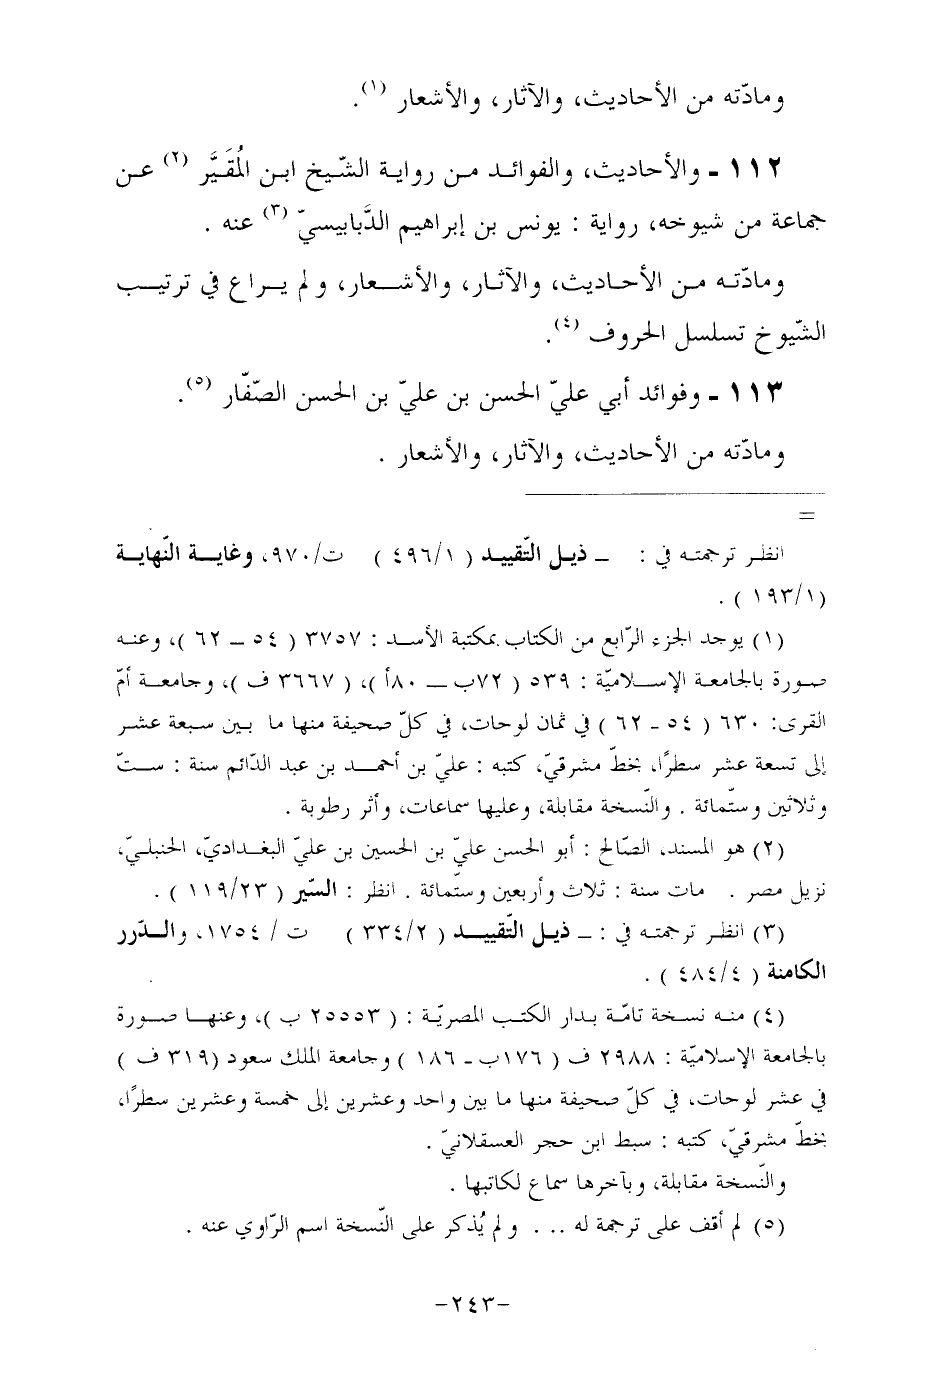 ومادّته من الأحاديث، والآثار، والأشعار (١).
١١٢ - والأحاديث، والفوائد من رواية الشّيخ ابن المُقَيَّر (٢) عن
جماعة من شيوخه، رواية : يونس بن إبراهيم الدَّبابيسيّ (٣) عنه .
ومادّته من الأحاديث، والآثار، والأشعار، ولم يراع في ترتيب
الشّيوخ تسلسل الحروف (٤).
١١٣ - وفوائد أبي عليّ الحسن بن عليّ بن الحسن الصّفّار (٥).
ومادّته من الأحاديث، والآثار، والأشعار .
=
انظر ترجمته في : – ذيل التّقييد ( ٤٩٦/١ ) ت/٩٧٠، وغاية النّهاية
(١٩٣/١ ) .
(١) يوجد الجزء الرّابع من الكتاب بمكتبة الأسد : ٣٧٥٧ ( ٥٤ – ٦٢ )، وعنه
صورة بالجامعة الإسلاميّة : ٥٣٩ ( ٧٢ب – ٨٠أ )، ( ٣٦٦٧ ف )، وجامعة أمّ
القرى: ٦٣٠ ( ٥٤ - ٦٢ ) في ثمان لوحات، في كلّ صحيفة منها ما بين سبعة عشر
إلى تسعة عشر سطرًا، بخطّ مشرقيّ، كتبه : عليّ بن أحمد بن عبد الدّائم سنة : ستّ
وثلاثين وستّمائة . والنّسخة مقابلة، وعليها سماعات، وأثر رطوبة .
(٢) هو المسند، الصّالح : أبو الحسن عليّ بن الحسين بن عليّ البغداديّ، الحنبليّ،
نزيل مصر . مات سنة : ثلاث وأربعين وستّمائة . انظر : السّير ( ١١٩/٢٣ ) .
(٣) انظر ترجمته في : – ذيل التّقييد ( ٣٣٤/٢ ) ت / ١٧٥٤، والدّرر
الكامنة ( ٤٨٤/٤ ) .
(٤) منه نسخة تامّة بدار الكتب المصريّة : ( ٢٥٥٥٣ ب )، وعنها صورة
بالجامعة الإسلاميّة : ٢٩٨٨ ف ( ١٧٦ب - ١٨٦ ) وجامعة الملك سعود (٣١٩ ف )
في عشر لوحات، في كلّ صحيفة منها ما بين واحد وعشرين إلى خمسة وعشرين سطرًا،
بخطّ مشرقيّ، كتبه : سبط ابن حجر العسقلانيّ .
والنّسخة مقابلة، وبآخرها سماع لكاتبها .
(٥) لم أقف على ترجمة له ... ولم يُذكر على النّسخة اسم الرّاوي عنه .
-٢٤٣-